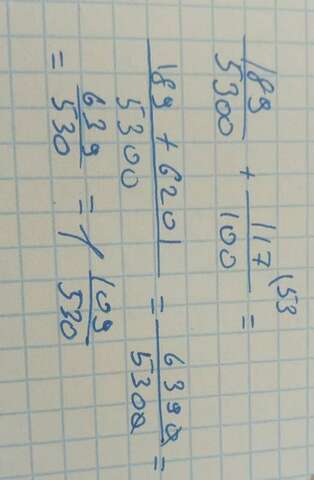 189/5300 + 117/100 (53 =
189 + 6201/5300 = 6390/5300 =
= 639/530 = 1 109/530